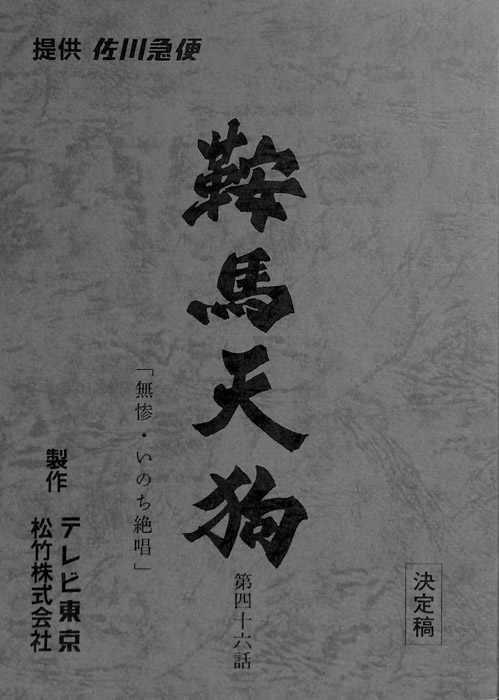 提供 佐川急便
鞍馬天狗
第四十六話
「無惨・いのち絶唱」
決定稿
製作
テレビ東京
松竹株式会社